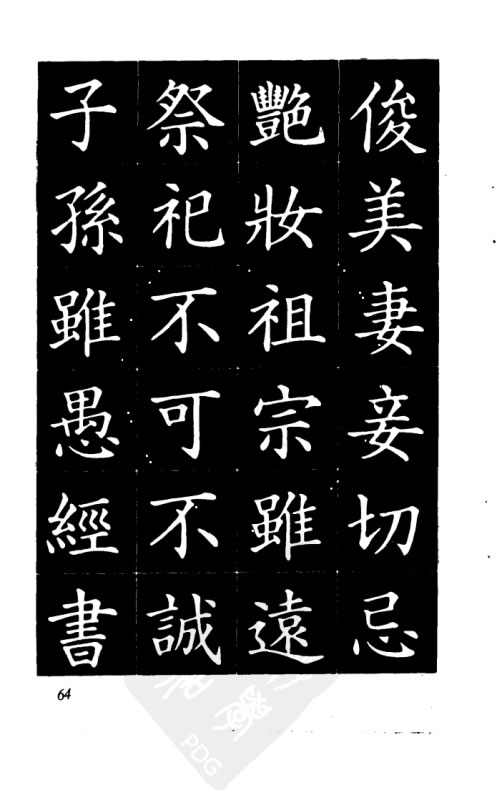 俊美妻妾切忌
艷妝祖宗雖遠
祭祀不可不誠
子孫雖愚經書
64
PDG